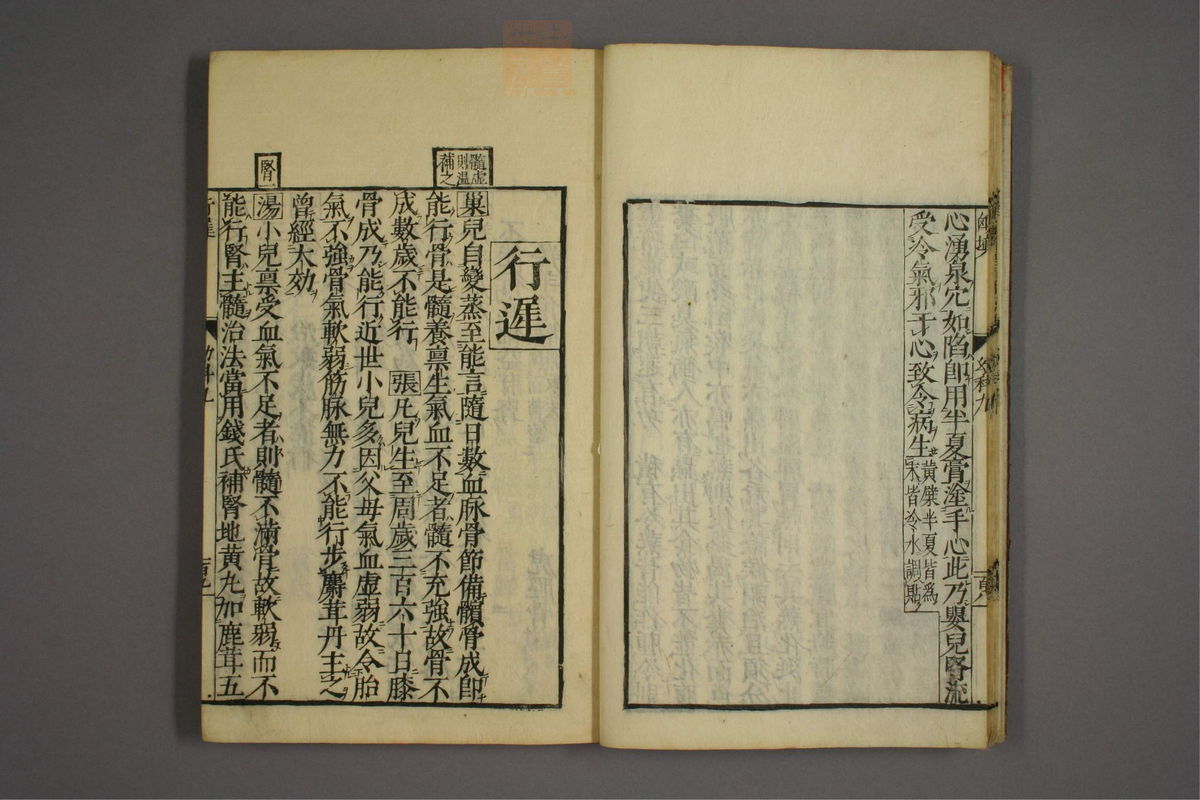 心湧泉穴如陷即用半夏膏塗手心此乃嬰兒腎流
受冷氣邪干心致令病生黃蘗半夏皆爲
末皆冷水調貼
行遲
髓虛
則溫
補之
巢兒自變蒸至能言隨日數血脉骨節備髕骨成即
能行骨是髓養禀生氣血不足者髓不充強故骨不
成數歲不能行 張凡兒生至周歲三百六十日膝
骨成乃能行近世小兒多因父母氣血虛弱故令胎
氣不強骨氣軟弱筋脉無力不能行步麝茸丹主之
曾經大効
腎
湯小兒禀受血氣不足者則髓不滿骨故軟弱而不
能行腎主髓治法當用錢氏補腎地黃丸加鹿茸五